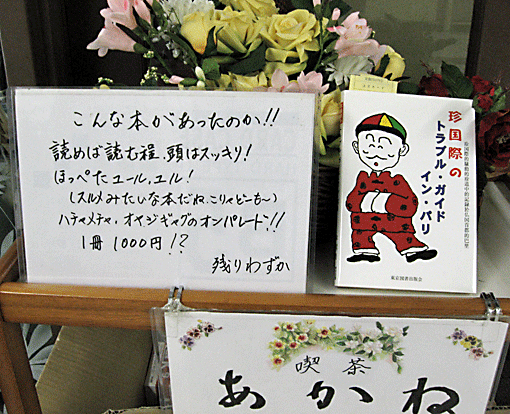 こんな本があったのか!!
読めば読む程、頭はスッキリ!
ほっぺたユール、エル!
(スルメみたいな本だね、こりゃどーも〜)
ハチャメチャ、オイジギャグのオンパレード!!
1冊 1000円!?
残りわずか
珍国際の
トラブル・ガイド
イン・パリ
東京図書出版会
喫茶
あかね